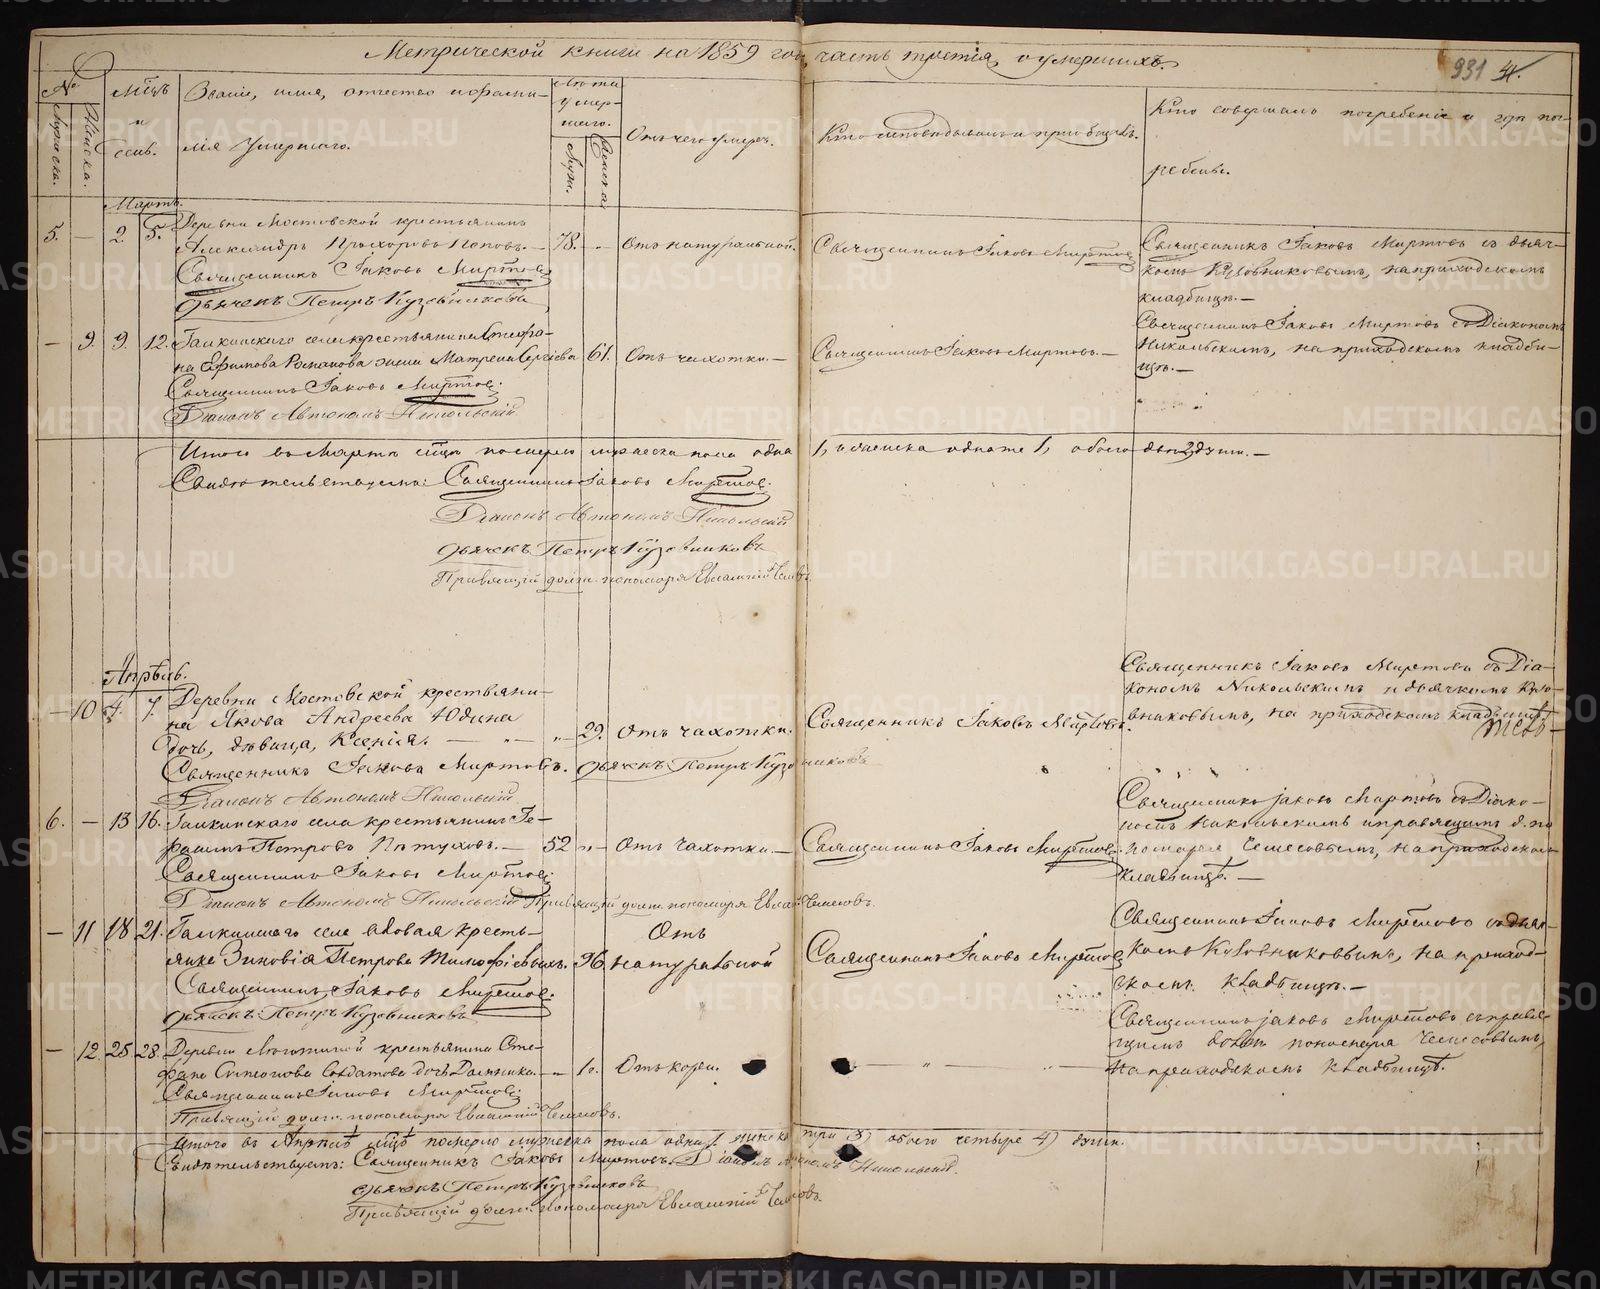 Метрической книги на 1859 год часть третія, о умершихъ.
931 4.
№
Мужеска.
Женска.
Мѣсяцъ
и
день.
Званіе, имя, отчество и фами-
лія умершаго.
Лѣта
умер-
шаго.
Муж.
Женска
Отъ чего умеръ.
Кто исповѣдывалъ и пріобщалъ.
Кто совершалъ погребеніе и гдѣ пог-
ребены.
Мартъ.
5. — 2. 5.
Деревни Мостовской крестьянинъ
Александръ Прохоровъ Поповъ. — 78. — Отъ натуральной.
Священникъ Іаковъ Миртовъ
Дьячекъ Петръ Кузовниковъ
Священникъ Іаковъ Миртовъ
Священникъ Іаковъ Миртовъ съ дьяч-
комъ Кузовниковымъ, на приходскомъ
кладбищѣ. —
— 9. 9. 12. Галкинскаго села крестьянина Стефа-
на Ефимова Романова жена Матрена Сергіева 61. Отъ чахотки. —
Священникъ Іаковъ Миртовъ.
Діаконъ Автономъ Никольскій
Священникъ Іаковъ Миртовъ. —
Священникъ Іаковъ Миртовъ съ Діакономъ
Никольскимъ, на приходскомъ кладби-
щѣ. —
Итого въ Мартѣ мѣсяцѣ померло мужеска пола одна 1, а женска одна же 1, обоего двѣ 2 души. —
Свидѣтельствуемъ: Священникъ Іаковъ Миртовъ.
Діаконъ Автономъ Никольскій
Дьячекъ Петръ Кузовниковъ
Правящій долж. пономаря Евлампій
Апрѣль.
— 10 4. 7. Деревни Мостовской крестьяни-
на Якова Андреева Юдина
дочь, дѣвица, Ксенія. — 29. Отъ чахотки.
Священникъ Іаковъ Миртовъ. Дьячекъ Петръ Кузовниковъ
Діаконъ Автономъ Никольскій
Священникъ Іаковъ Миртовъ.
Священникъ Іаковъ Миртовъ съ Діа-
кономъ Никольскимъ и дьячкомъ Кузо-
вниковымъ, на приходскомъ кладбищѣ
6. — 13 16. Галкинскаго села крестьянинъ Ге-
расимъ Петровъ Пѣтуховъ. — 52 „ — Отъ чахотки —
Священникъ Іаковъ Миртовъ.
Діаконъ Автономъ Никольскій Правящій долж. пономаря Евлампій
Священникъ Іаковъ Миртовъ.
Священникъ Іаковъ Миртовъ съ Діако-
номъ Никольскимъ и правящимъ д. по-
номаря на приходскомъ
кладбищѣ. —
— 11 18 21. Галкинскаго села вдовая кресть-
янка Зиновія Петрова Тимофѣевыхъ. 96. Отъ
натуральной
Священникъ Іаковъ Миртовъ.
Дьячекъ Петръ Кузовниковъ
Священникъ Іаковъ Миртовъ
Священникъ Іаковъ Миртовъ съ дьяч-
комъ Кузовниковымъ, на приход-
скомъ кладбищѣ. —
— 12. 25 28. Деревни крестьянина Сте-
фана Симеонова Солдатова дочь Домника. — 1. Отъ кори.
Священникъ Іаковъ Миртовъ.
Правящій долж. пономаря Евлампій
Священникъ Іаковъ Миртовъ съ правя-
щимъ долж. пономаря
на приходскомъ кладбищѣ.
Итого въ Апрѣлѣ мѣсяцѣ померло мужеска пола одинъ 1 женска три 3, обоего четыре 4) души.
Свидѣтельствуемъ: Священникъ Іаковъ Миртовъ. Діаконъ Автономъ Никольскій.
Дьячекъ Петръ Кузовниковъ
Правящій долж. пономаря Евлампій
METRIKI.GASO-URAL.RU